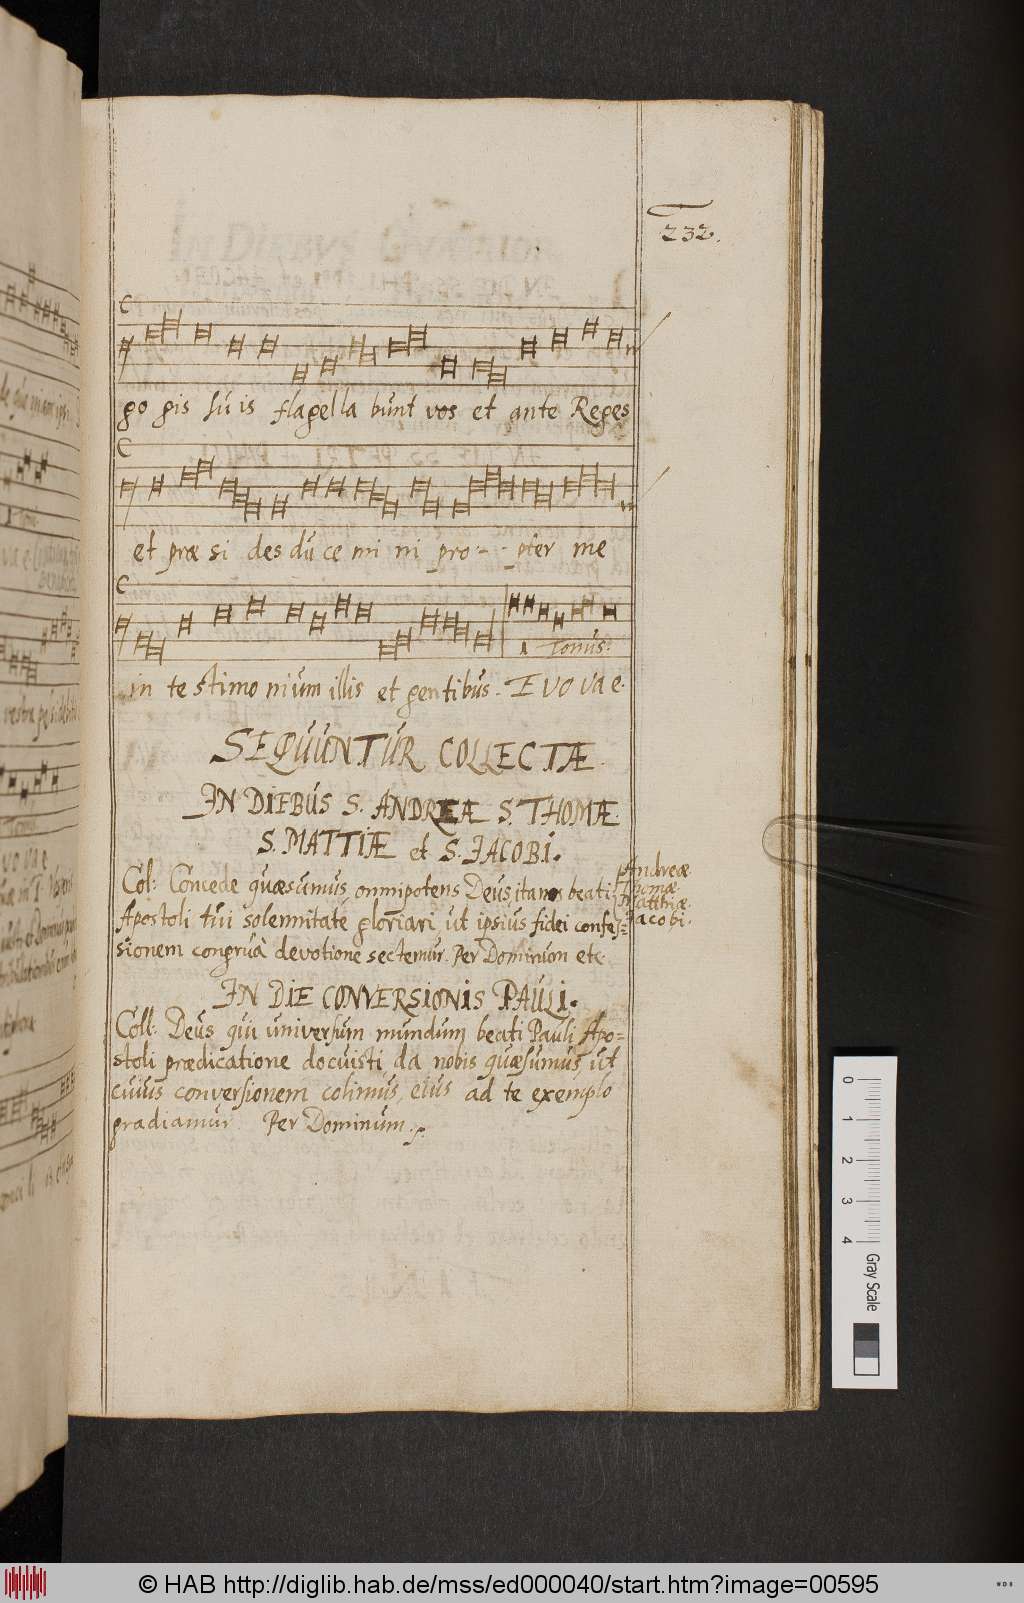 232.
go gis su is flagella bunt vos et ante Reges
et præ si des du ce mi ni pro - - pter me
1 Tonus:
in te stimo nium illis et gentibus. E vo va e.
SEQUUNTUR COLLECTÆ.
IN DIEBUS S. ANDREÆ S. THOMÆ.
S. MATTIÆ et S. JACOBI.
Col: Concede quæsumus omnipotens Deus ita nos beati
Apostoli tui solennitate gloriari, ut ipsius fidei confes=
sionem congrua devotione sectemur. Per Dominum etc.
Andreæ
Thomæ
Matthiæ.
Jacobi.
IN DIE CONVERSIONIS PAULI.
Coll: Deus qui universum mundum beati Pauli Apo=
stoli prædicatione docuisti, da nobis quæsumus, ut
cuius conversionem colimus, eius ad te exemplo
gradiamur. Per Dominum.
0 1 2 3 4
Gray Scale
© HAB http://diglib.hab.de/mss/ed000040/start.htm?image=00595